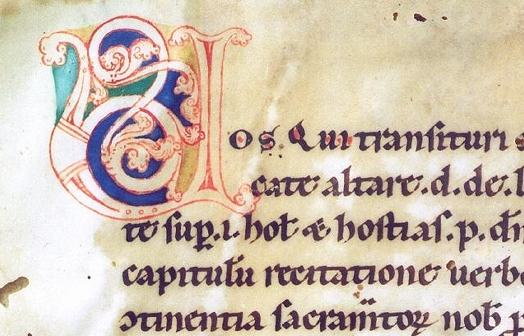 Uos. Qui transituri
cate altare.d.de.l
te sup̱.i.hoł & hostias.p.dñ
capitulū recitatione uerbo
ↄtinentia sacram̄toꝝ nob̄ p